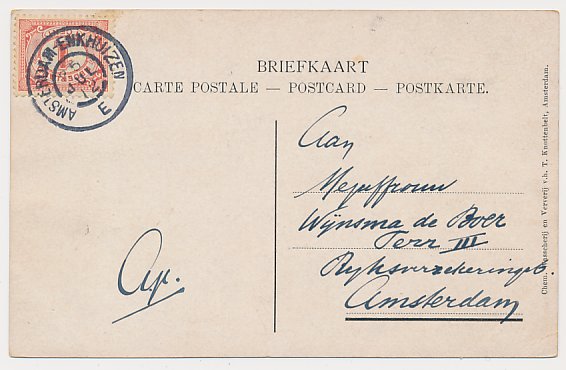 AMSTERDAM-ENKHUIZEN
E
BRIEFKAART
CARTE POSTALE — POSTCARD — POSTKARTE.
Aan
Mejuffrouw
Wijnsma de Boer
Terr III
Rijksverzekeringsb.
Amsterdam
Chem. Wasscherij en Ververij v.h. T. Knottenbelt, Amsterdam.